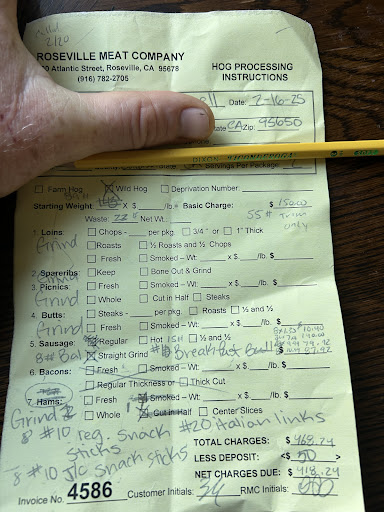 2/20
ROSEVILLE MEAT COMPANY
Atlantic Street, Roseville, CA 95678
(916) 782-2705
HOG PROCESSING
INSTRUCTIONS
Date: 2-16-25
CA Zip: 95650
DIXON TICONDEROGA
Servings Per Package
Farm Hog Wild Hog Deprivation Number.
Starting Weight X $ /lb. Basic Charge: $ 150.00
Waste: 22 Net Wt. 55# Trim only
1. Loins: Chops - per pkg. 3/4" or 1" Thick
Grind Roasts ½ Roasts and ½ Chops
Fresh Smoked – Wt: x $ /lb. $
2. Spareribs: Keep Bone Out & Grind
Grind
3. Picnics: Fresh Smoked – Wt: x $ /lb. $
Grind Whole Cut in Half Steaks
4. Butts: Steaks - per pkg. Roasts ½ and ½
Grind Fresh Smoked – Wt: x $ /lb. $
5. Sausage: Regular Hot ½ and ½
8# Bal Straight Grind Breakfast Bulk
6. Bacons: Fresh Smoked – Wt: x $ /lb. $
Regular Thickness or Thick Cut
7. Hams: Fresh Smoked – Wt: x $ /lb. $
Grind Whole Cut in Half Center Slices
8 #10 reg. snack sticks #20 italian links
8 #10 J/C snack sticks
TOTAL CHARGES: $ 468.24
LESS DEPOSIT: <$ 50 >
NET CHARGES DUE: $ 418.24
Invoice No. 4586 Customer Initials: RMC Initials: